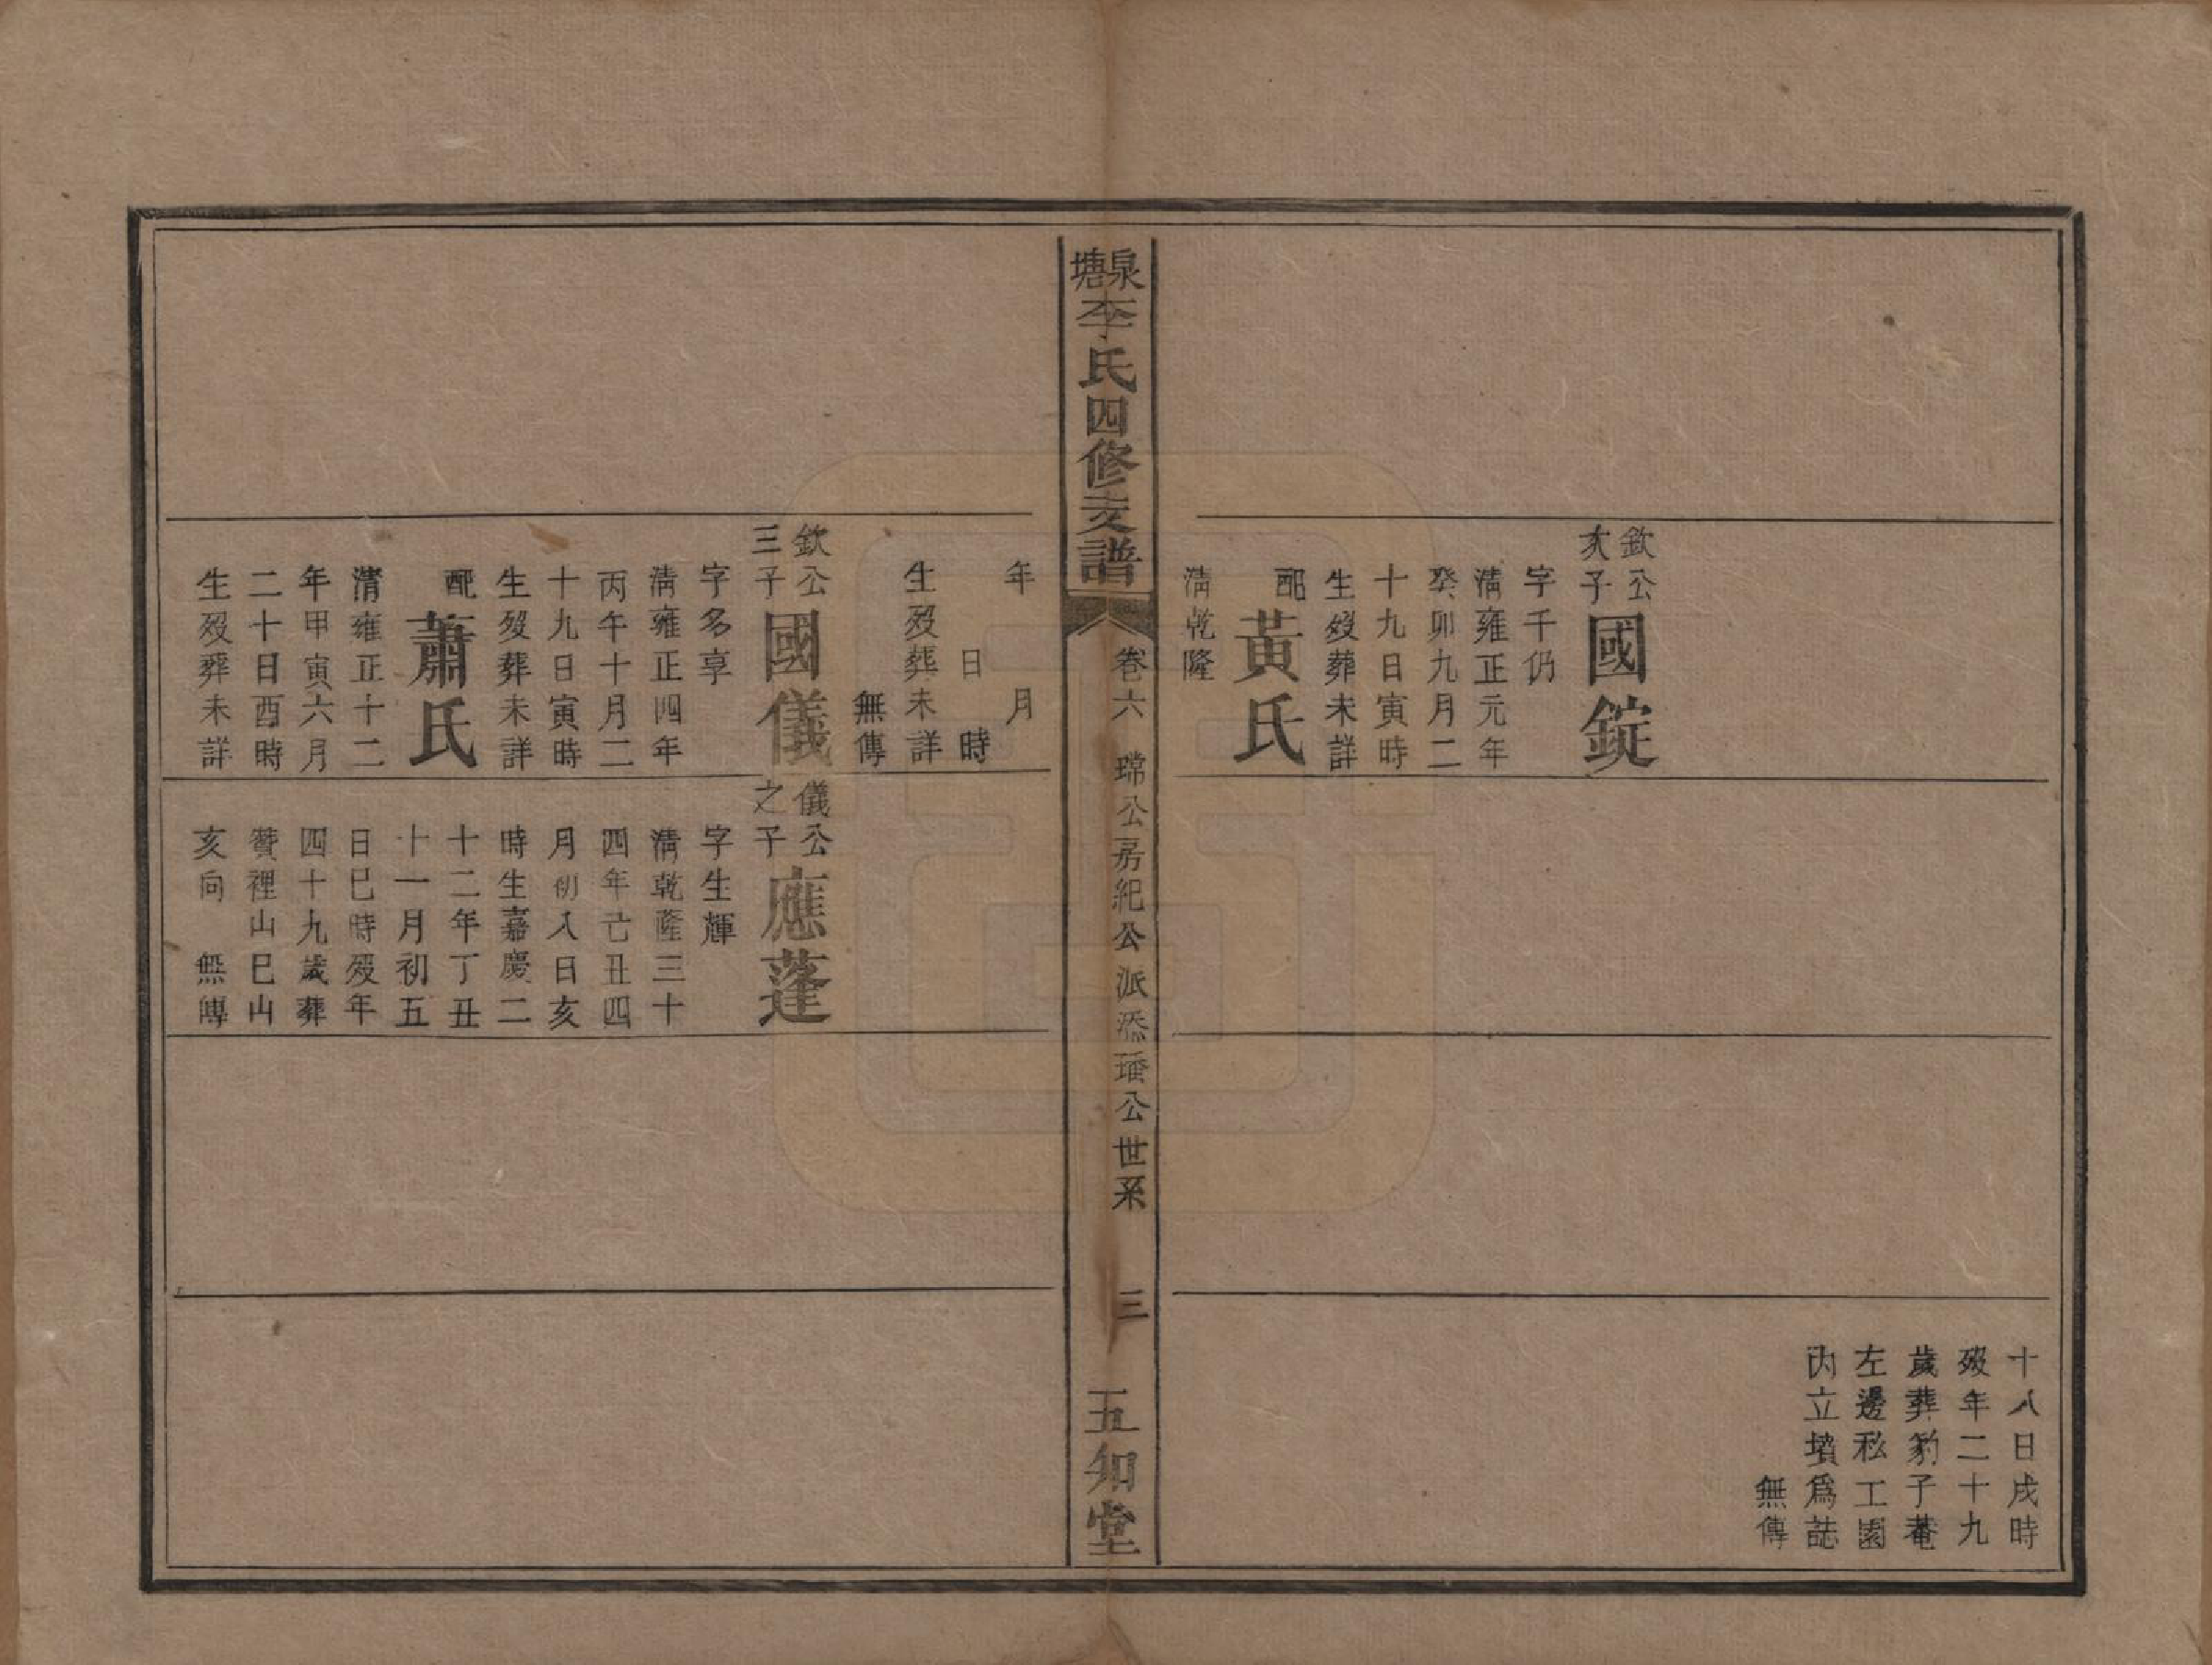 十八日戌時
歿年二十九
歲葬豹子菴
左邊私工園
內立墳爲誌
無傳
欽公
次子
國錠
字千仍
清雍正元年
癸卯九月二
十九日寅時
生歿葬未詳
配
黃氏
清乾隆
泉塘李氏四修支譜
卷六
瑺公房紀公派添璠公世系
三
五知堂
年月
日時
生歿葬未詳
無傳
欽公
三子
國儀
字多享
清雍正四年
丙午十月二
十九日寅時
生歿葬未詳
配
蕭氏
清雍正十二
年甲寅六月
二十日酉時
生歿葬未詳
儀公
之子
應蓬
字生輝
清乾隆三十
四年己丑四
月初八日亥
時生嘉慶二
十二年丁丑
十一月初五
日巳時歿年
四十九歲葬
贊裡山巳山
亥向 無傳